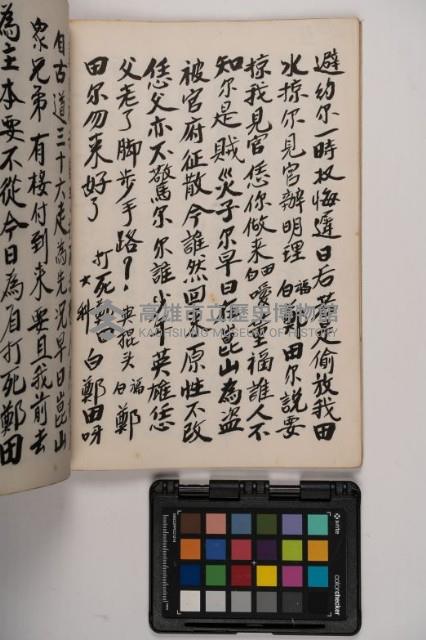 避約尔一時反悔遲日后若是偷放我田
水掠尔見官辦明理 白福 田尔說要
掠我見官恁你做来 白田 噯董福誰人不
知尔是賊災子尔早日在崑山為盜
被官府征散今誰然回 原性不改
恁父亦不驚尔 尔誰少年英雄恁
父老了脚步手路 白福 鄭
田尔勿来好了 打死 白 鄭田呀
自古道三十六走為先況早日崑山
眾兄弟有接付到来要且我前去
為主本要不從今日為有打死鄭田
高雄市立歷史博物館
KAOHSIUNG MUSEUM OF HISTORY
x-rite
colorchecker